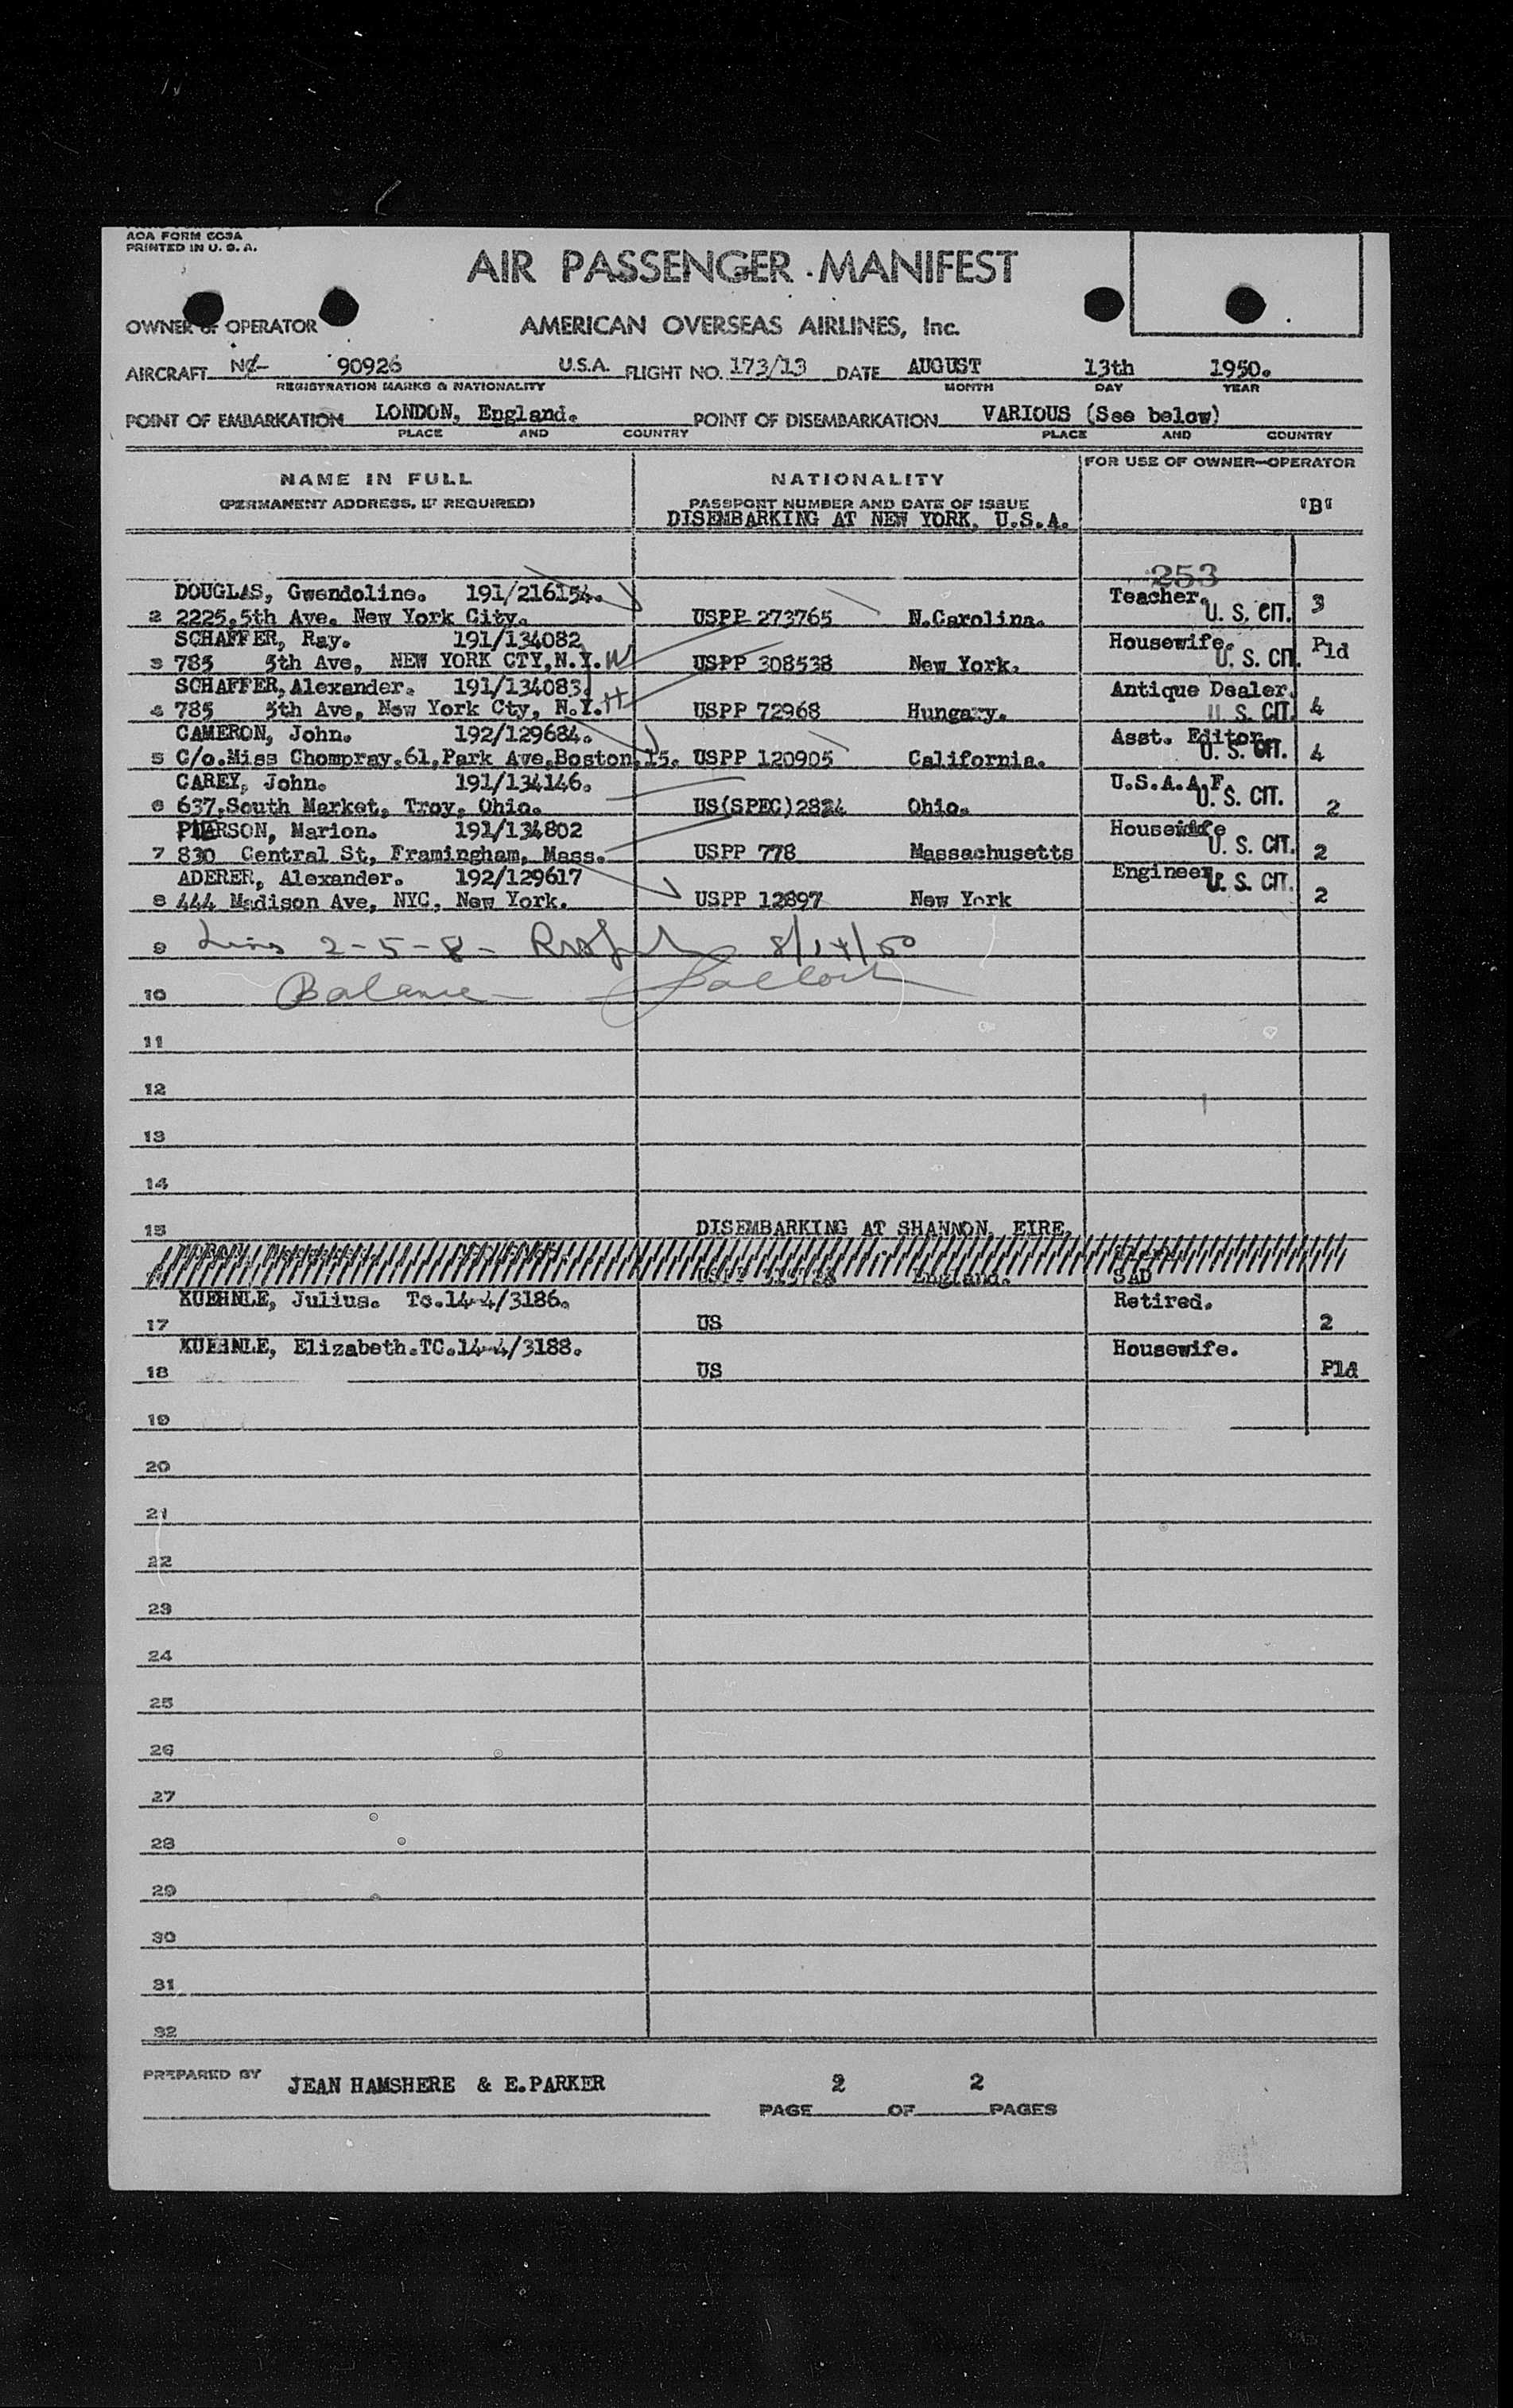 AOA FORM 603A
PRINTED IN U. S. A.
AIR PASSENGER MANIFEST
OWNER or OPERATOR AMERICAN OVERSEAS AIRLINES, Inc.
AIRCRAFT NC- 90926 U.S.A. FLIGHT NO. 173/13 DATE AUGUST 13th 1950.
REGISTRATION MARKS & NATIONALITY MONTH DAY YEAR
POINT OF EMBARKATION LONDON, England. POINT OF DISEMBARKATION VARIOUS (See below)
PLACE AND COUNTRY PLACE AND COUNTRY
NAME IN FULL NATIONALITY FOR USE OF OWNER—OPERATOR
(PERMANENT ADDRESS, IF REQUIRED) PASSPORT NUMBER AND DATE OF ISSUE "B"
DISEMBARKING AT NEW YORK, U.S.A.
253
DOUGLAS, Gwendoline. 191/216154. Teacher.
2 2225,5th Ave. New York City. USPP 273765 N.Carolina. U. S. CIT. 3
SCHAFFER, Ray. 191/134082 Housewife.
3 785 5th Ave, NEW YORK CTY,N.Y. W USPP 308538 New York. U. S. CIT. Pld
SCHAFFER,Alexander. 191/134083. Antique Dealer.
4 785 5th Ave, New York Cty, N.Y. H USPP 72968 Hungary. U. S. CIT. 4
CAMERON, John. 192/129684. Asst. Editor.
5 C/o.Miss Chompray.61,Park Ave,Boston,15. USPP 120905 California. U. S. CIT. 4
CAREY, John. 191/134146. U.S.A.A.F.
6 637,South Market, Troy, Ohio. US(SPEC)2824 Ohio. U. S. CIT. 2
PIERSON, Marion. 191/134802 Housewife
7 830 Central St, Framingham, Mass. USPP 778 Massachusetts U. S. CIT. 2
ADERER, Alexander. 192/129617 Engineer.
8 444 Madison Ave, NYC, New York. USPP 12897 New York U. S. CIT. 2
9 Lines 2-5-8- 8/14/50
10 Balance —
11
12
13
14
15 DISEMBARKING AT SHANNON, EIRE.
England. SAD
KUEHNLE, Julius. Tc.14-4/3186. Retired.
17 US 2
KUEHNLE, Elizabeth.TC.14-4/3188. Housewife.
18 US Pld
19
20
21
22
23
24
25
26
27
28
29
30
31
32
PREPARED BY JEAN HAMSHERE & E.PARKER 2 2
PAGE OF PAGES